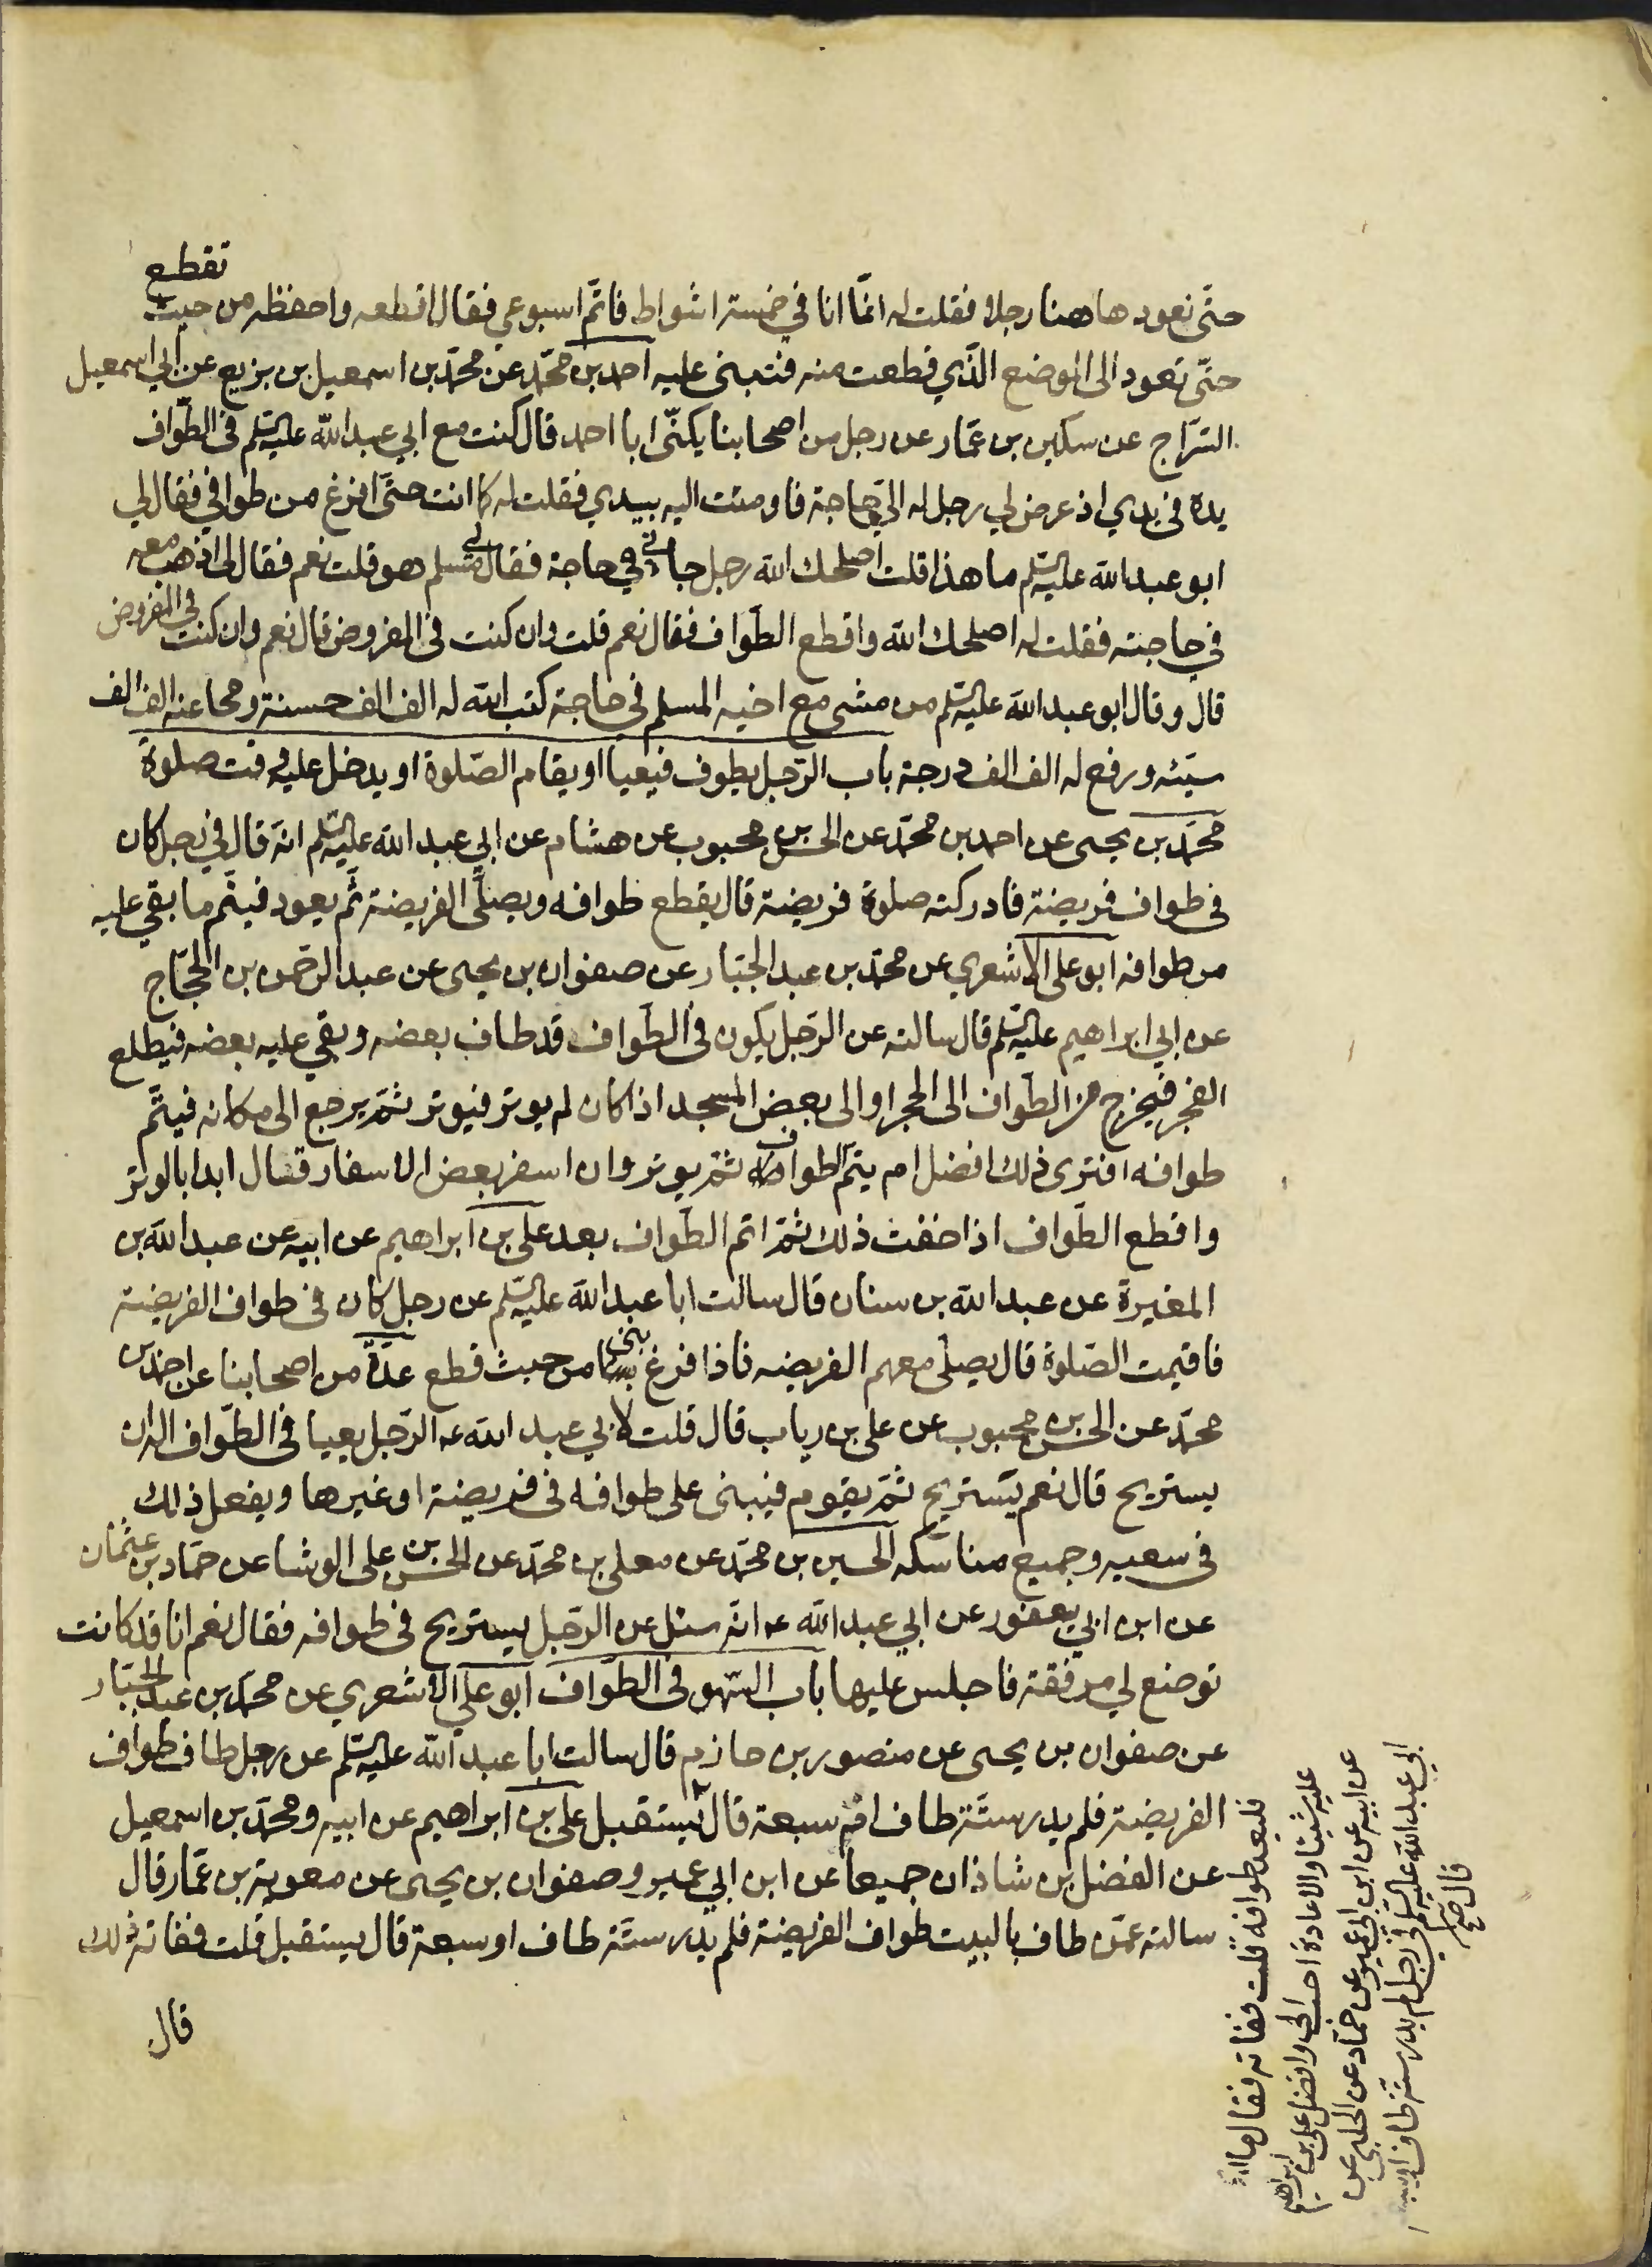 تقطع
حتّى نعود هاهنا رجلا فقلت له انّما انا في خمسة اشواط فاتم اسبوعي فقال اقطعه واحفظه من حيث
حتّى تعود الى الموضع الّذي قطعت منه فتبنى عليه احمد بن محمّد عن محمّد بن اسمعيل بن بزيع عن ابي اسمعيل
السّرّاج عن سكين بن عمّار عن رجل من اصحابنا يكنّى ابا احمد قال كنت مع ابي عبد الله عليه السّلم في الطّواف
يده في يدي اذ عرض لي رجل له اليّ حاجة فاومئت اليه بيدي فقلت له كما انت حتّى افرغ من طوافي فقال لي
ابو عبد الله عليه السّلم ما هذا قلت اصلحك الله رجل جاءني في حاجة فقال لي مسلم هو قلت نعم فقال لي اذهب معه
في حاجته فقلت له اصلحك الله واقطع الطّواف فقال نعم قلت وان كنت في المفروض قال نعم وان كنت في المفروض
قال وقال ابو عبد الله عليه السّلم من مشى مع اخيه المسلم في حاجة كتب الله له الف الف حسنة ومحا عنه الف الف
سيّئه ورفع له الف الف درجة باب الرّجل يطوف فيعيا او يقام الصّلوة او يدخل عليه وقت صلوة
محمّد بن يحيى عن احمد بن محمّد عن الحسن بن محبوب عن هشام عن ابي عبد الله عليه السّلم انّه قال في رجل كان
في طواف فريضة فادركته صلوة فريضة قال يقطع طوافه ويصلّى الفريضة ثمّ يعود فيتّم ما بقي عليه
من طوافه ابو على الاشعري عن محمّد بن عبد الجبّار عن صفوان بن يحيى عن عبد الرّحمن بن الحجّاج
عن ابي ابراهيم عليه السّلم قال سالته عن الرّجل يكون في الطّواف قد طاف بعضه وبقي عليه بعضه فيطلع
الفجر فيخرج من الطّواف الى الحجر او الى بعض المسجد اذا كان لم يوتر فيوتر ثمّ يرجع الى مكانه فيتّم
طوافه افترى ذلك افضل ام يتمّ الطواف ثمّ يوتر وان اسفر بعض الاسفار قال ابدا بالوتر
واقطع الطّواف اذا خفت ذلك ثمّ اتم الطّواف بعد على بن ابراهيم عن ابيه عن عبد الله بن
المغيرة عن عبد الله بن سنان قال سالت ابا عبد الله عليه السّلم عن رجل كان في طواف الفريضة
فاقيمت الصّلوة قال يصلّى معهم الفريضه فاذا فرغ بنى من حيث قطع عدّة من اصحابنا عن احمد بن
محمّد عن الحسن بن محبوب عن على بن رياب قال قلت لابي عبد الله عه الرّجل يعيبا في الطّواف اله ان
يستريح قال نعم يستريح ثمّ يقوم فيبنى على طوافه في فريضة او غيرها ويفعل ذلك
في سعيه وجميع مناسكه الحسين بن محمّد عن معلى بن محمّد عن الحسن بن على الوشا عن حمّاد بن عثمان
عن ابن ابي يعفور عن ابي عبد الله عه انّه سئل عن الرّجل يستريح في طوافه فقال نعم انا قد كانت
توضع لي مرفقة فاجلس عليها باب السّهو في الطّواف ابو علي الاشعري عن محمّد بن عبد الجبّار
عن صفوان بن يحيى عن منصور بن حازم قال سالت ابا عبد الله عليه السّلم عن رجل طاف طواف
الفريضة فلم يدر ستّة طاف ام سبعة قال يستقبل على بن ابراهيم عن ابيه ومحمّد بن اسمعيل
عن الفضل بن شاذان جميعا عن ابن ابي عمير وصفوان بن يحيى عن معوية بن عمّار قال
سالته عمّن طاف بالبيت طواف الفريضة فلم يدر ستّة طاف او سبعة قال يستقبل قلت ففاته ذلك
قال
فليعد طوافه قلت ففاته فقال ما ارى
عليه شيئا والاعادة احب الى وافضل على بن ابراهيم
عن ابيه عن ابن ابي عمير عن حمّاد عن الحلبي عن
ابي عبد الله عليه السّلم في رجل لم يدر ستّة طاف او سبعة
قال